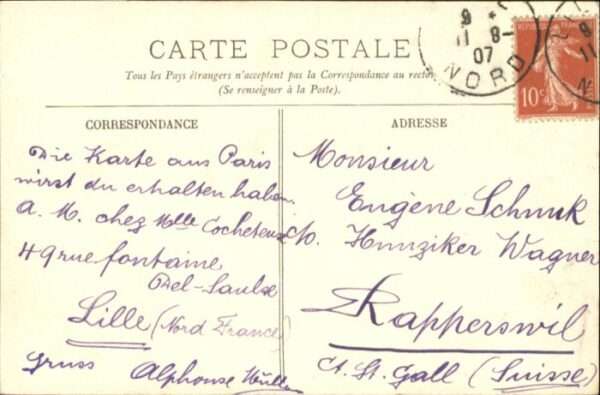 CARTE POSTALE
Tous les Pays étrangers n'acceptent pas la Correspondance au recto
(Se renseigner à la Poste).
CORRESPONDANCE
Die Karte aus Paris
wirst du erhalten haben
a. M. chez Mlle
49 rue fontaine
Del-Saulx
Lille (Nord France)
Gruss Alphonse Müller
ADRESSE
Monsieur
Eugène Schmuk
c/o. Hunziker Wagner
Rapperswil
Ct. St. Gall (Suisse)
9
11 8-
07
NORD
10c
9
11
N